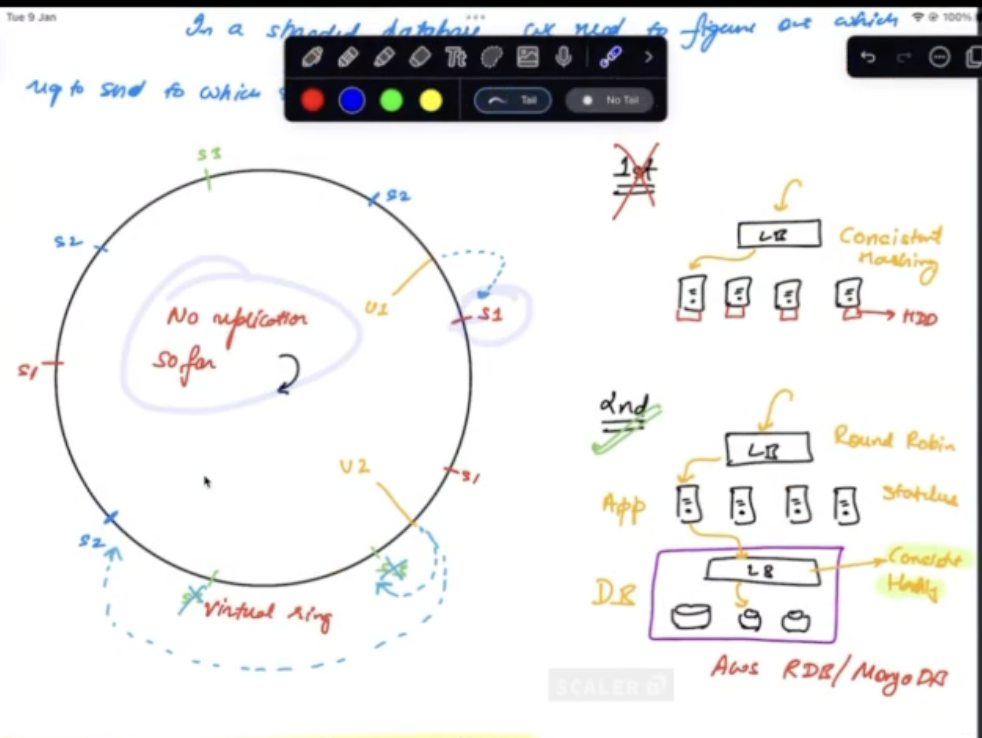 Tue 9 Jan
100%
In a sharded database we need to figure out which
req to send to which
Tt
Tail
No Tail
S3
S2
S2
U1
S1
No replication
so far
S1
U2
S1
S2
Virtual ring
1st
LB
Consistent
Hashing
HDD
2nd
LB
Round Robin
App
Stateless
LB
Consistent
Hashing
DB
Aws RDB/MongoDB
SCALER